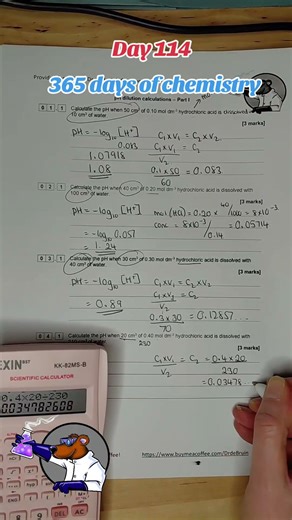 Day 114
365 days of chemistry
Provid
pH dilution calculations – Part I
0 1 1 Calculate the pH when 50 cm³ of 0.10 mol dm⁻³ hydrochloric acid is dissolved
10 cm³ of water.
[3 marks]
pH = -log₁₀ [H⁺] C₁ x V₁ = C₂ x V₂
0.083 C₁ x V₁ = C₂
1.07918 V₂
1.08 0.1 x 50 = 0.083
60
0 2 1 Calculate the pH when 40 cm³ of 0.20 mol dm⁻³ hydrochloric acid is dissolved with
100 cm³ of water.
[3 marks]
pH = -log₁₀ [H⁺] mol(HCl) = 0.20 x 40/1000 = 8x10⁻³
= -log₁₀ 0.057 conc = 8x10⁻³/0.14 = 0.05714
= 1.24
0 3 1 Calculate the pH when 30 cm³ of 0.30 mol dm⁻³ hydrochloric acid is dissolved with
40 cm³ of water.
[3 marks]
pH = -log₁₀ [H⁺] C₁ x V₁ = C₂ x V₂
= 0.89 C₁ x V₁ = C₂
V₂
0.3 x 30 = 0.12857...
70
0 4 1 Calculate the pH when 20 cm³ of 0.40 mol dm⁻³ hydrochloric acid is dissolved with
230
[3 marks]
C₁ x V₁ = C₂ = 0.4 x 20
V₂ 230
= 0.03478...
EXIN
KK-82MS-B
SCIENTIFIC CALCULATOR
0.4×20÷230
0.034782608
8 9 DEL AC
offee!
https://www.buymeacoffee.com/DrdeBruin